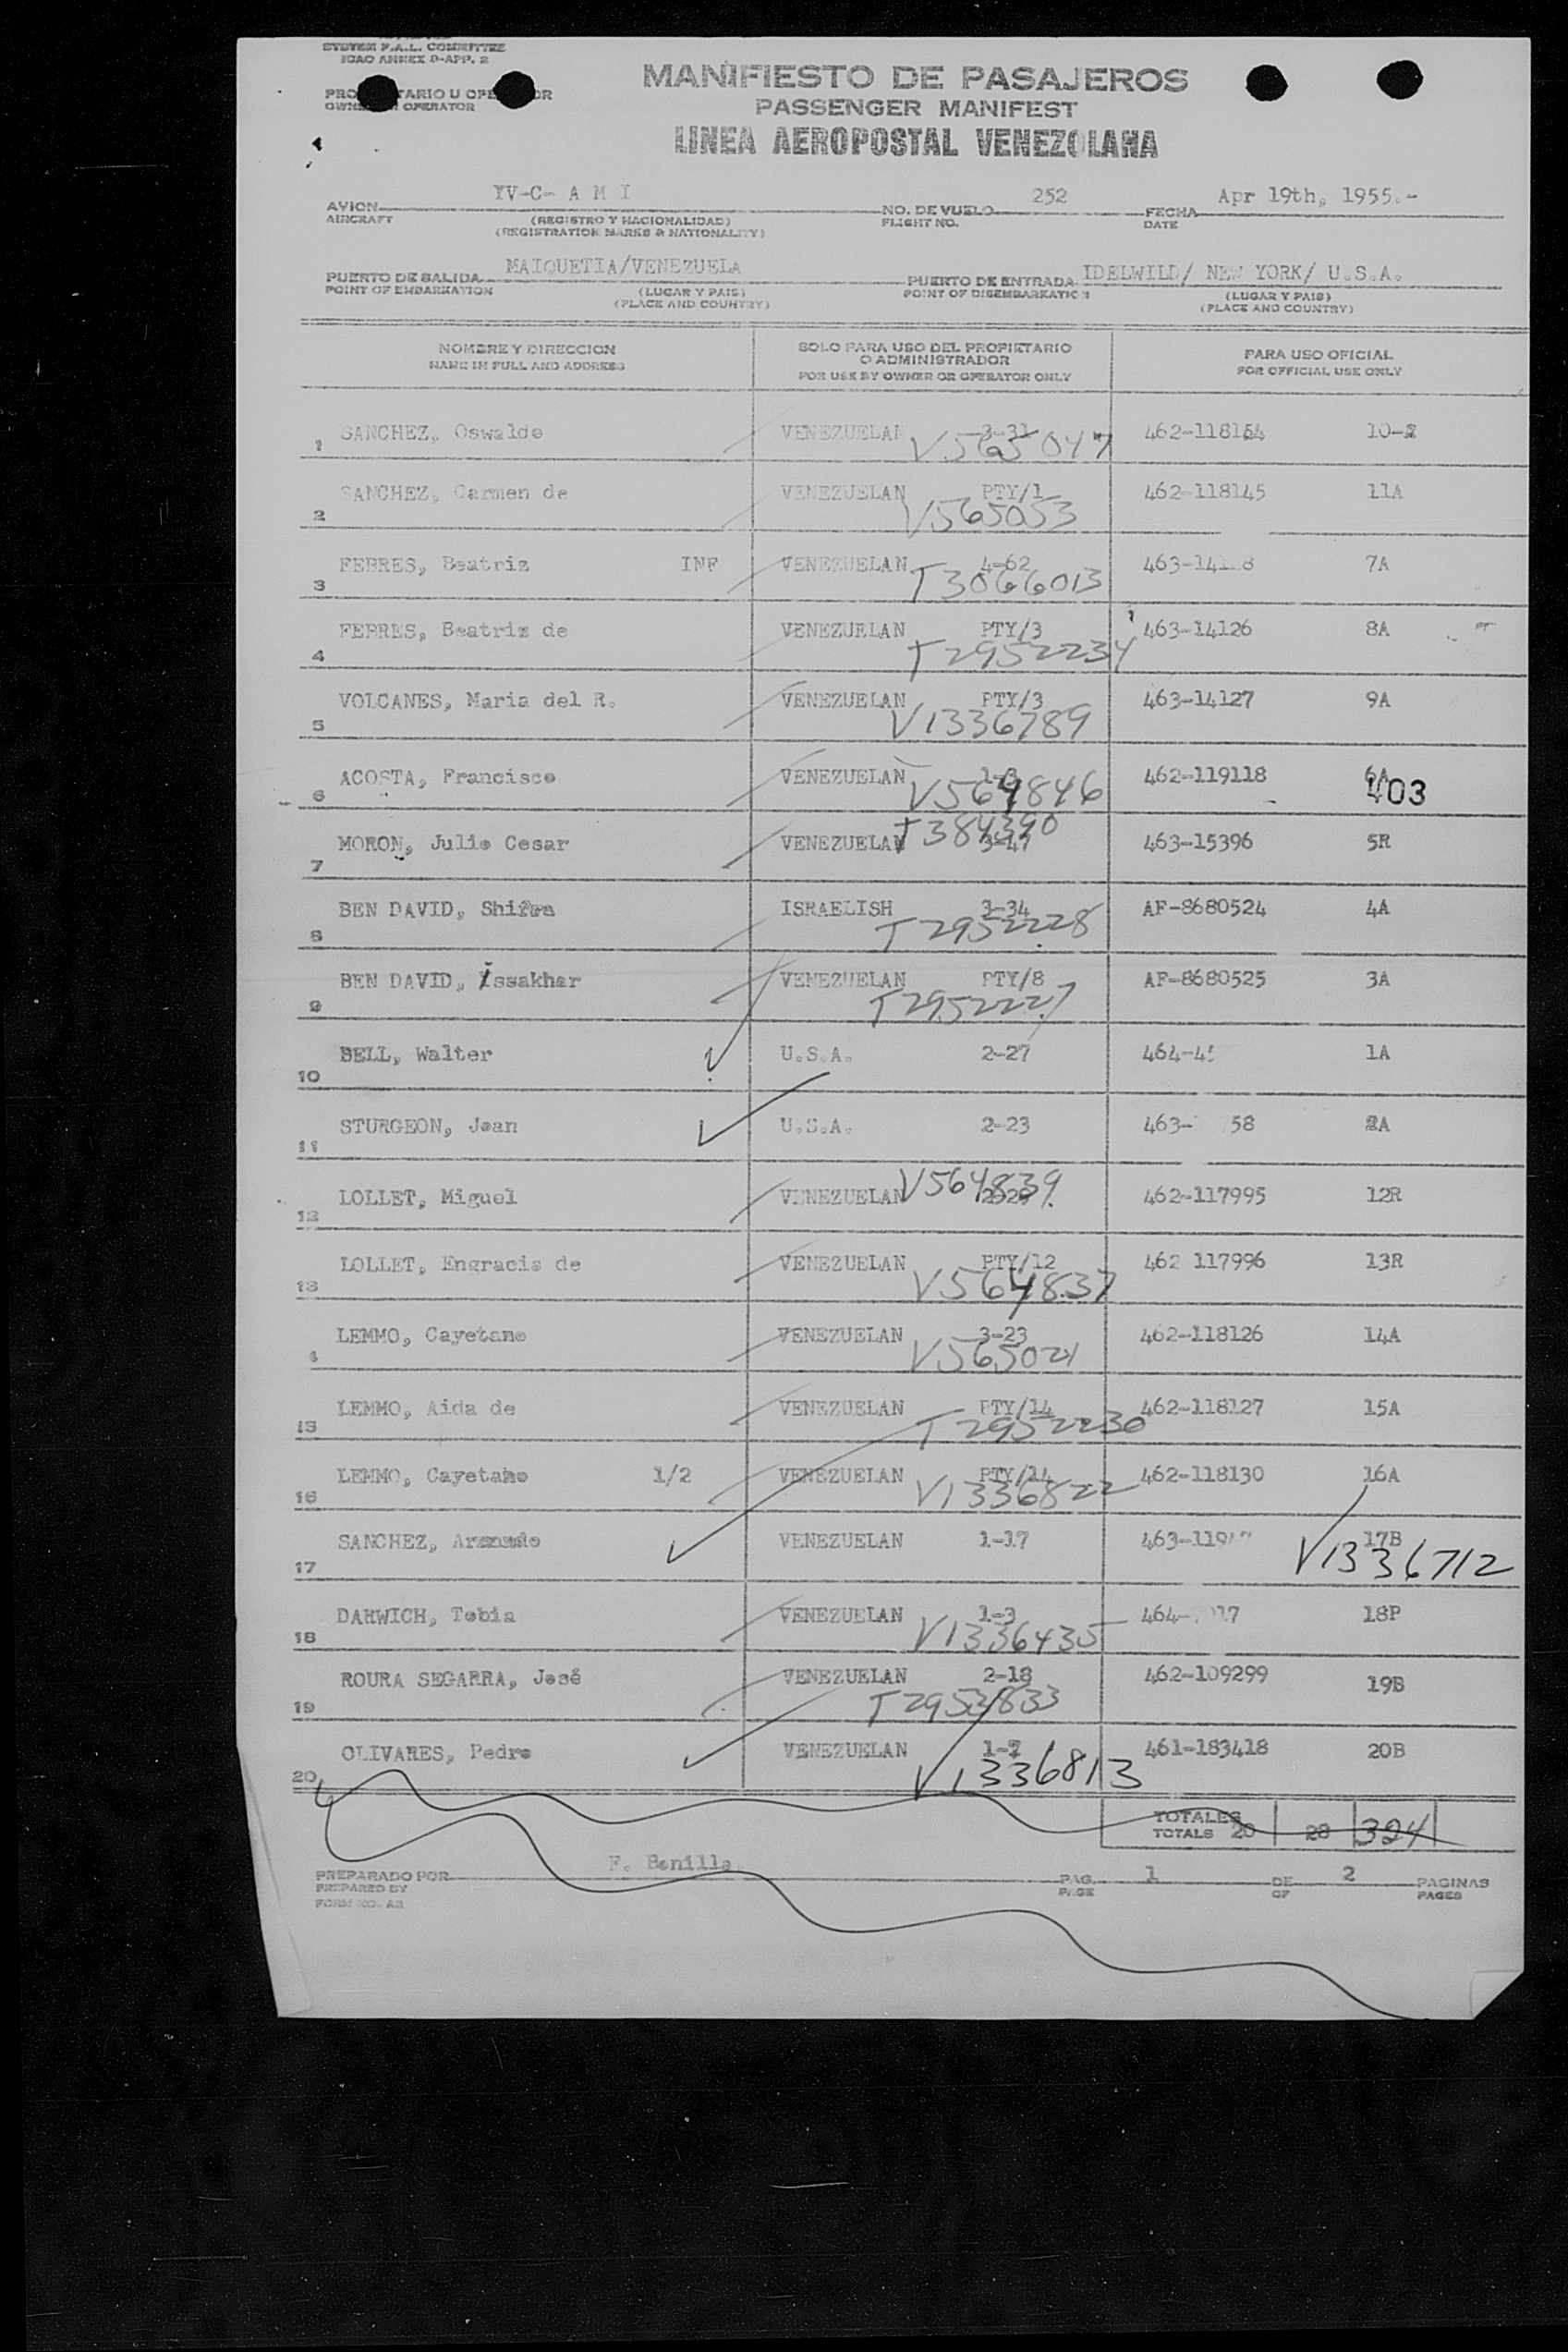 SYSTEM F.A.L. COMMITTEE
ICAO ANNEX 9-APP. 2
MANIFIESTO DE PASAJEROS
PASSENGER MANIFEST
LINEA AEROPOSTAL VENEZOLANA
OPERATOR
YV-C- A M I 252 Apr 19th, 1955.-
AVION NO. DE VUELO FECHA
AIRCRAFT (REGISTRO Y NACIONALIDAD) FLIGHT NO. DATE
(REGISTRATION MARKS & NATIONALITY)
MAIQUETIA/VENEZUELA IDELWILD/ NEW YORK/ U.S.A.
PUERTO DE SALIDA PUERTO DE ENTRADA
POINT OF EMBARKATION (LUGAR Y PAIS) POINT OF DISEMBARKATION (LUGAR Y PAIS)
(PLACE AND COUNTRY) (PLACE AND COUNTRY)
NOMBRE Y DIRECCION SOLO PARA USO DEL PROPIETARIO PARA USO OFICIAL
NAME IN FULL AND ADDRESS O ADMINISTRADOR FOR OFFICIAL USE ONLY
FOR USE BY OWNER OR OPERATOR ONLY
1 SANCHEZ, Oswaldo VENEZUELAN 3-31 462-118154
V565047
2 SANCHEZ, Carmen de VENEZUELAN PTY/1 462-118145 11A
V565053
3 FEBRES, Beatriz INF VENEZUELAN 4-62 7A
T3066013
4 FEBRES, Beatriz de VENEZUELAN PTY/3 463-14126 8A
T2952234
5 VOLCANES, Maria del R. VENEZUELAN PTY/3 463-14127 9A
V1336789
6 ACOSTA, Francisco VENEZUELAN 1-3 462-119118 6A
V564846 403
T384390
7 MORON, Julio Cesar VENEZUELAN 3-47 463-15396 5R
8 BEN DAVID, Shifra ISRAELISH 3-34 AF-8680524 4A
T2952228
9 BEN DAVID, Issakhar VENEZUELAN PTY/8 AF-8680525 3A
T2952227
10 BELL, Walter U.S.A. 2-27 1A
11 STURGEON, Jean U.S.A. 2-23 2A
V564839
12 LOLLET, Miguel VENEZUELAN 462-117995 12R
13 LOLLET, Engracia de VENEZUELAN PTY/12 462 117996 13R
V564837
LEMMO, Cayetano VENEZUELAN 3-23 462-118126 14A
V565021
15 LEMMO, Aida de VENEZUELAN PTY/14 462-118127 15A
T2952230
16 LEMMO, Cayetano 1/2 VENEZUELAN PTY/14 462-118130 16A
V1336822
17 SANCHEZ, Armando VENEZUELAN 1-17 17B
V1336712
18 DARWICH, Tobia VENEZUELAN 1-3 18P
V1336435
19 ROURA SEGARRA, José VENEZUELAN 2-18 462-109299 19B
T2953833
20 OLIVARES, Pedro VENEZUELAN 1-7 461-183418 20B
V1336813
TOTALES
TOTALS 20 28 324
F. Bonilla
PREPARADO POR PAG. 1 DE 2 PAGINAS
PREPARED BY PAGE OF PAGES
FORM NO. A3